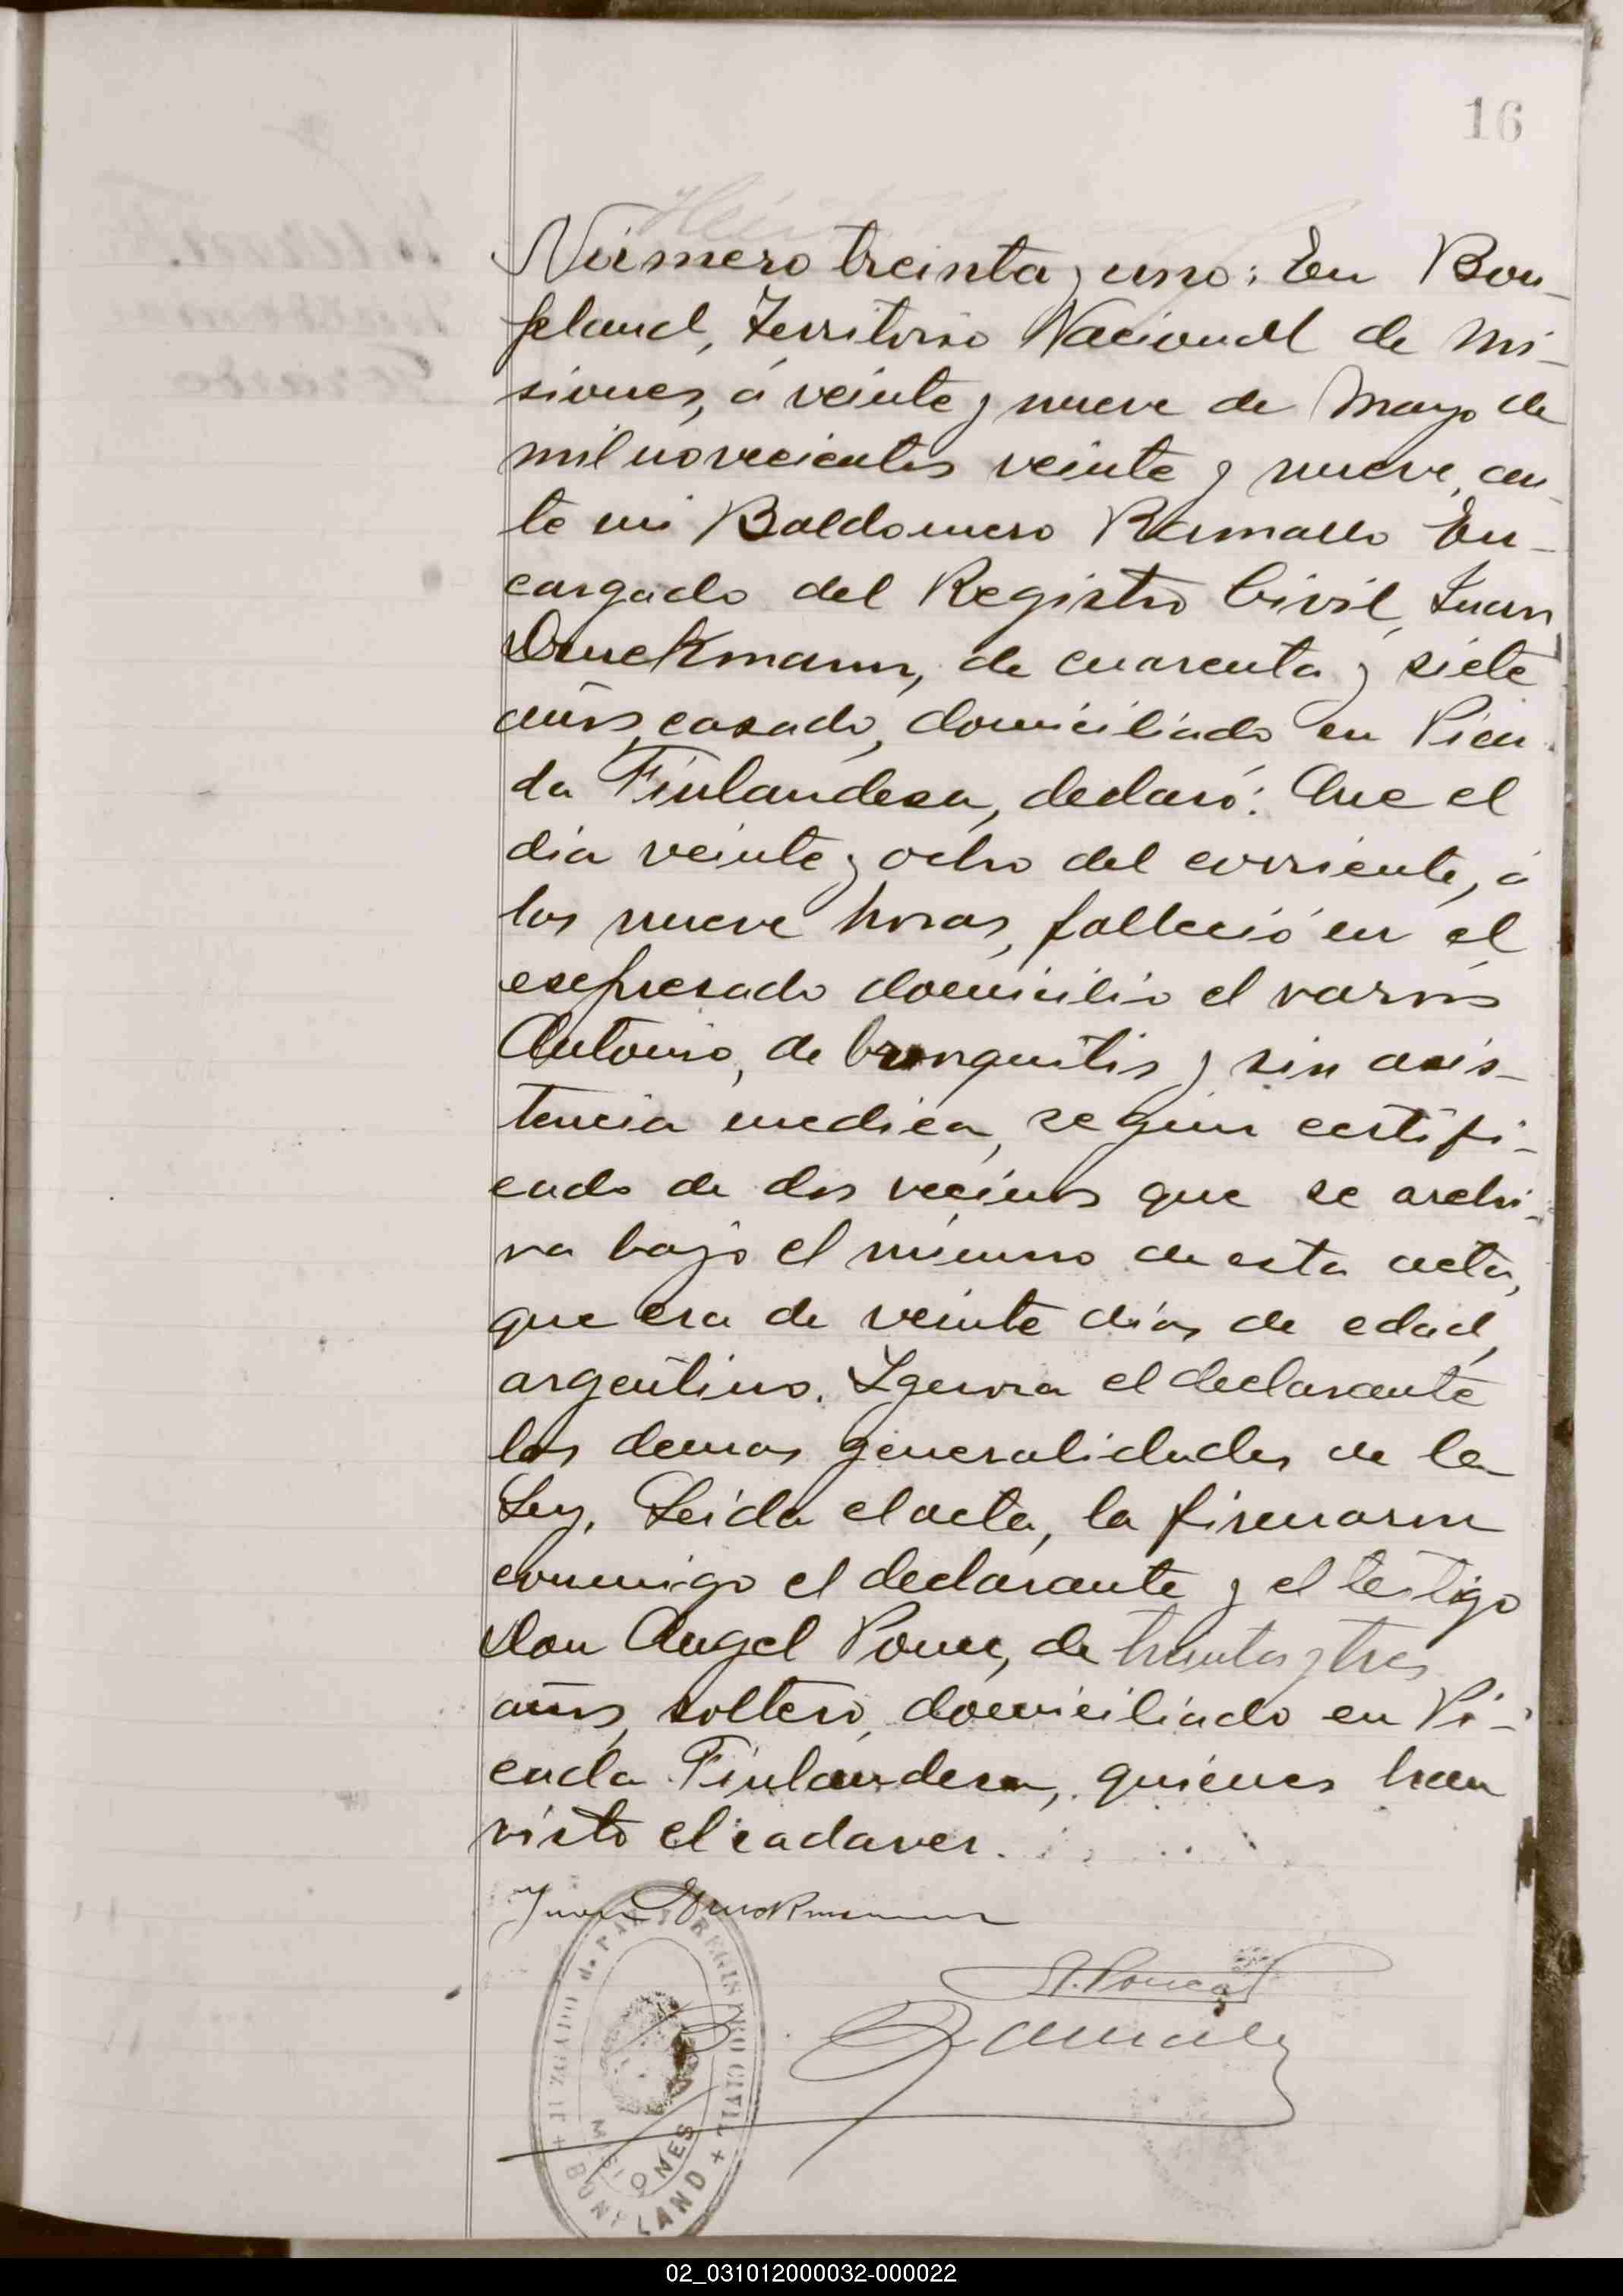 16
Número treinta y uno: En Bon-
pland, Territorio Nacional de Mi-
siones, á veinte y nueve de Mayo de
mil novecientos veinte y nueve, an-
te mi Baldomero Ramallo En-
cargado del Registro Civil, Juan
Druckmann, de cuarenta y siete
años, casado, domiciliado en Pica
da Finlandesa, declaró: Que el
dia veinte y ocho del corriente, á
las nueve horas, falleció en el
expresado domicilio el varon
Antonio, de bronquitis y sin asis-
tencia medica, segun certifi-
cado de dos vecinos que se archi-
va bajo el número de esta acta,
que era de veinte dias de edad,
argentino. Ignora el declarante
las demas generalidades de la
Ley. Leida el acta, la firmaron
conmigo el declarante y el testigo
Don Angel Ponce, de treinta y tres
años, soltero, domiciliado en Pi-
cada Finlandesa, quienes han
visto el cadaver.
Juan Druckmann
A. Ponce
B. Ramallo
JUZGADO de PAZ Y REGISTRO CIVIL
MISIONES
+ BONPLAND +
02_031012000032-000022